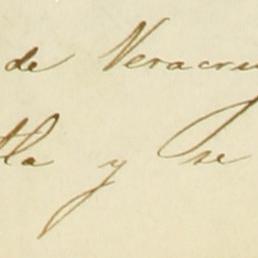 de Veracru
tla y se